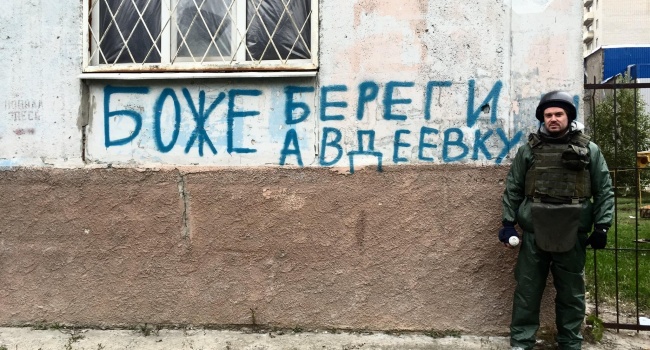 БОЖЕ БЕРЕГИ
АВДЕЕВКУ